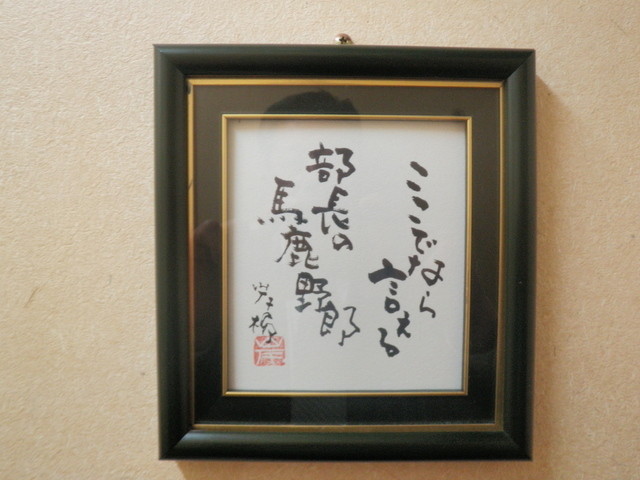 ここでなら
言える
部長の
馬鹿野郎